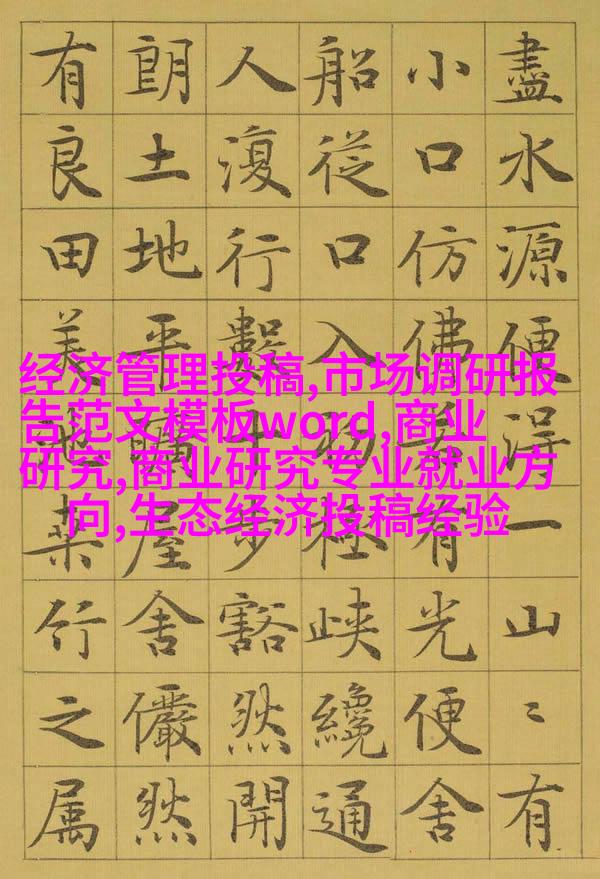 盡水源便淂一山〻有
小口仿佛若有光便舍
船從口入初極峽纔通
人復行數十步豁然開
朗土地平曠屋舍儼然
有良田美池桑竹之属
经济管理投稿,市场调研报
告范文模板word,商业
研究,商业研究专业就业方
向,生态经济投稿经验